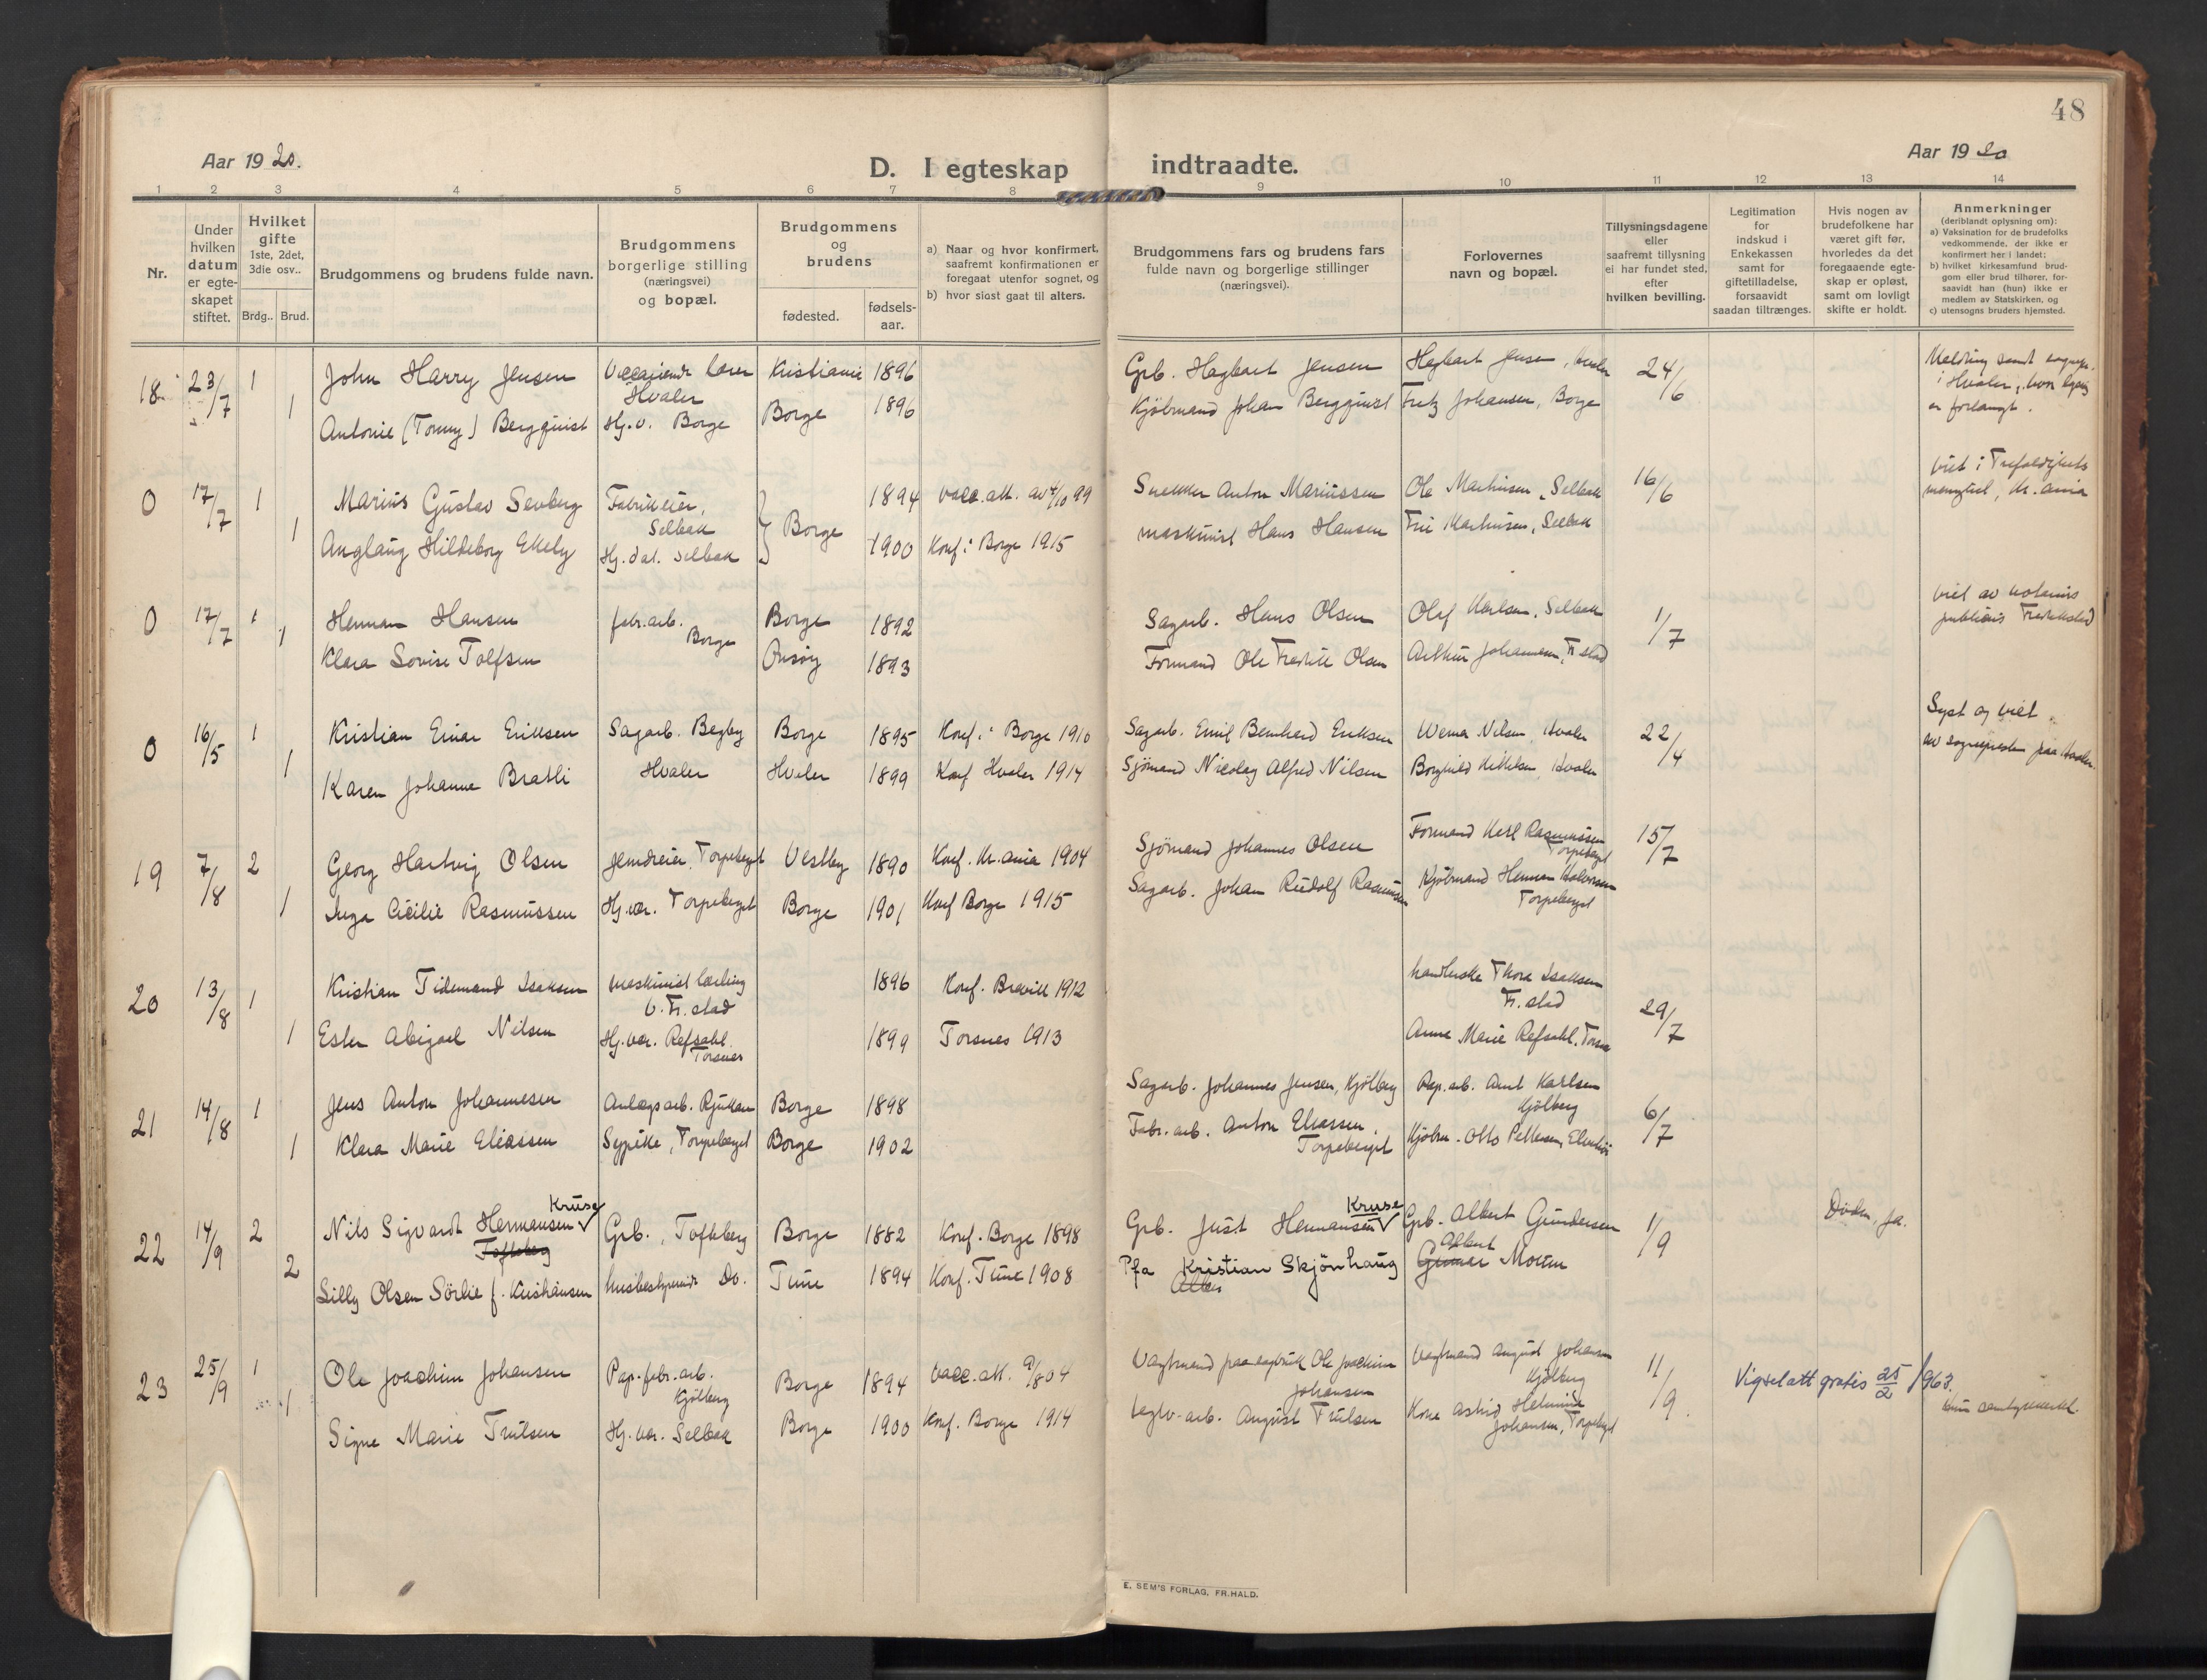 48
Aar 19 20.
D. I egteskap indtraadte.
Aar 19 20
1 2 3 4 5 6 7 8 9 10 11 12 13 14
Nr.
Under hvilken datum er egte-skapet stiftet.
Hvilket gifte 1ste, 2det, 3die osv..
Brdg.. Brud.
Brudgommens og brudens fulde navn.
Brudgommens borgerlige stilling (næringsvei) og bopæl.
Brudgommens og brudens
fødested.
fødsels-aar.
a) Naar og hvor konfirmert, saafremt konfirmationen er foregaat utenfor sognet, og
b) hvor sidst gaat til alters.
Brudgommens fars og brudens fars fulde navn og borgerlige stillinger (næringsvei).
Forlovernes navn og bopæl.
Tillysningsdagene eller saafremt tillysning ei har fundet sted, efter hvilken bevilling.
Legitimation for indskud i Enkekassen samt for giftetilladelse, forsaavidt saadan tiltrænges.
Hvis nogen av brudefolkene har været gift før, hvorledes da det foregaaende egte-skap er opløst, samt om lovligt skifte er holdt.
Anmerkninger (deriblandt oplysning om):
a) Vaksination for de brudefolks vedkommende, der ikke er konfirmert her i landet;
b) hvilket kirkesamfund brud-gom eller brud tilhører, for-saavidt han (hun) ikke er medlem av Statskirken, og
c) utensogns bruders hjemsted.
18 23/7 1 John Harry Jensen Vicarierende lærer Hvaler Kristiania 1896 Grb. Hagbart Jensen Hagbart Jensen, Hvaler 24/6
1 Antonie (Tonny) Bergquist Hj.v. Borge Borge 1896 Kjöbmand Johan Bergquist Fritz Johansen, Borge
er forlangt.
0 17/7 1 Marius Gustav Sevberg Fabrikeier, Selbak 1894 vacc.att. av 4/10 99 Snekker Anton Mariussen Ole Mathisen, Selbak 16/6 viet i Trefoldighets menighet, Kr.ania
1 Anglaug Hildeborg Ekely Hj. dat. Selbak Borge 1900 Konf. i Borge 1915 maskinist Hans Hansen Fru Mathisen, Selbak
0 17/7 1 Herman Hansen fabr.arb. Borge Borge 1892 Sagarb. Hans Olsen Olaf Karlsen, Selbak 1/7 viet av notarius publicus Fredrikstad
1 Klara Lovise Tolfsen Onsöy 1893 Formand Ole Fredrik Olsen Arthur Johannesen, Fr.stad
0 16/5 1 Kristian Einar Eriksen Sagarb. Begby Borge 1895 Konf. i Borge 1910 Sagarb. Emil Bernhard Eriksen Werner Nilsen, Hvaler 22/4 Lyst og viet av sognepresten paa Hvaler.
1 Karen Johanne Bratli Hvaler Hvaler 1899 Konf Hvaler 1914 Sjömand Nicolay Alfred Nilsen Borghild Mikkelsen, Hvaler
19 7/8 2 Georg Hartvig Olsen Jerndreier, Torpeberget Vestby 1890 Konf. Kr.ania 1904 Sjömand Johannes Olsen Formand Karl Rasmussen Torpeberget 15/7
1 Inga Cicilie Rasmussen Hj.vær. Torpeberget Borge 1901 Konf Borge 1915 Sagarb. Johan Rudolf Rasmussen Kjöbmand Herman Halvorsen Torpeberget
20 13/8 1 Kristian Tidemand Isaksen maskinist lærling v. Fr.stad 1896 Konf. Brevik 1912 handlerske Thora Isaksen Fr.stad 29/7
1 Ester Abigael Nilsen Hj.vær. Refsahl Torsnes 1899 Torsnes 1913 Anne Marie Refsahl, Torsnes
21 14/8 1 Jens Anton Johannesen Anlægsarb. Rjukan Borge 1898 Sagarb. Johannes Jensen, Kjölberg Pap.arb. Arnt Karlsen Kjölberg 6/7
1 Klara Marie Eliassen Sypike, Torpeberget Borge 1902 Fabr.arb. Anton Eliassen, Torpeberget Kjöbm. Otto Pettersen
22 14/9 2 Nils Sigvardt Hermansen Kruse Tofteberg Grb., Tofteberg Borge 1882 Konf. Borge 1898 Grb. Just Hermansen Kruse Grb. Albert Gundersen 1/9 Döden, ja.
2 Lilly Olsen Sörlie f. Kristiansen husbestyrerinde Do. Tune 1894 Konf. Tune 1908 Pfa Kristian Skjönhaug Albert Gunnar Morum
23 25/9 1 Ole Joachim Johansen Pap.fabr.arb. Kjölberg Borge 1894 vacc.att. 9/8 04 Vagtmand paa sagbruk Ole Joachim Johansen Vagtmand August Johansen Kjölberg 11/9 Vigselatt gratis 25/2 1963.
1 Signe Marie Trulsen Hj.vær. Selbak Borge 1900 Konf. Borge 1914 teglv.arb. August Trulsen Kone Astrid Helmine Johansen, Torpeberget
E. SEM'S FORLAG, FR.HALD.